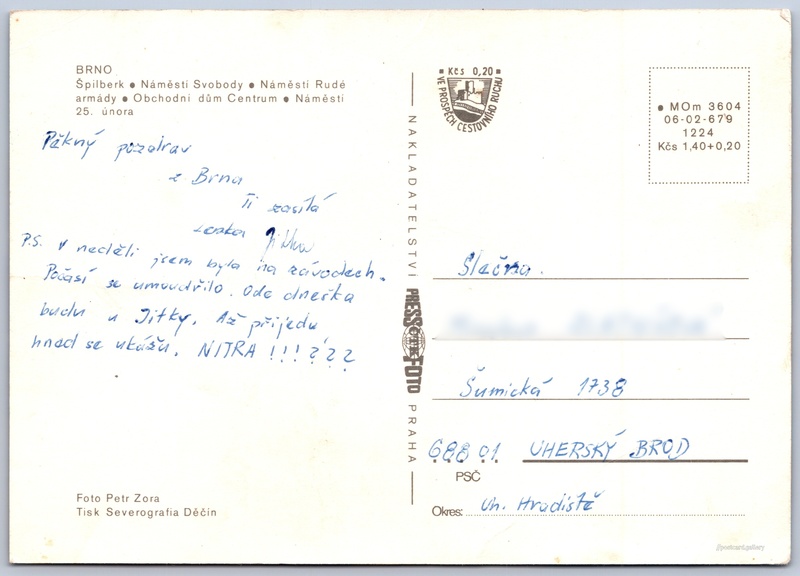 BRNO
Špilberk ● Náměstí Svobody ● Náměstí Rudé
armády ● Obchodní dům Centrum ● Náměstí
25. února
Pěkný pozdrav
z Brna
Ti zasílá
Lenka Jitka
P.S. V neděli jsem byla na závodech.
Počasí se umoudřilo. Ode dneška
budu u Jitky. Až přijedu
hned se ukážu. NITRA !!! ???
Foto Petr Zora
Tisk Severografia Děčín
Kčs 0,20
VE PROSPĚCH CESTOVNÍHO RUCHU
NAKLADATELSTVÍ PRESSFOTO PRAHA
ČTK
● MOm 3604
06-02-679
1224
Kčs 1,40+0,20
Slečna.
Šumická 1738
688 01 UHERSKÝ BROD
PSČ
Okres: Uh. Hradiště